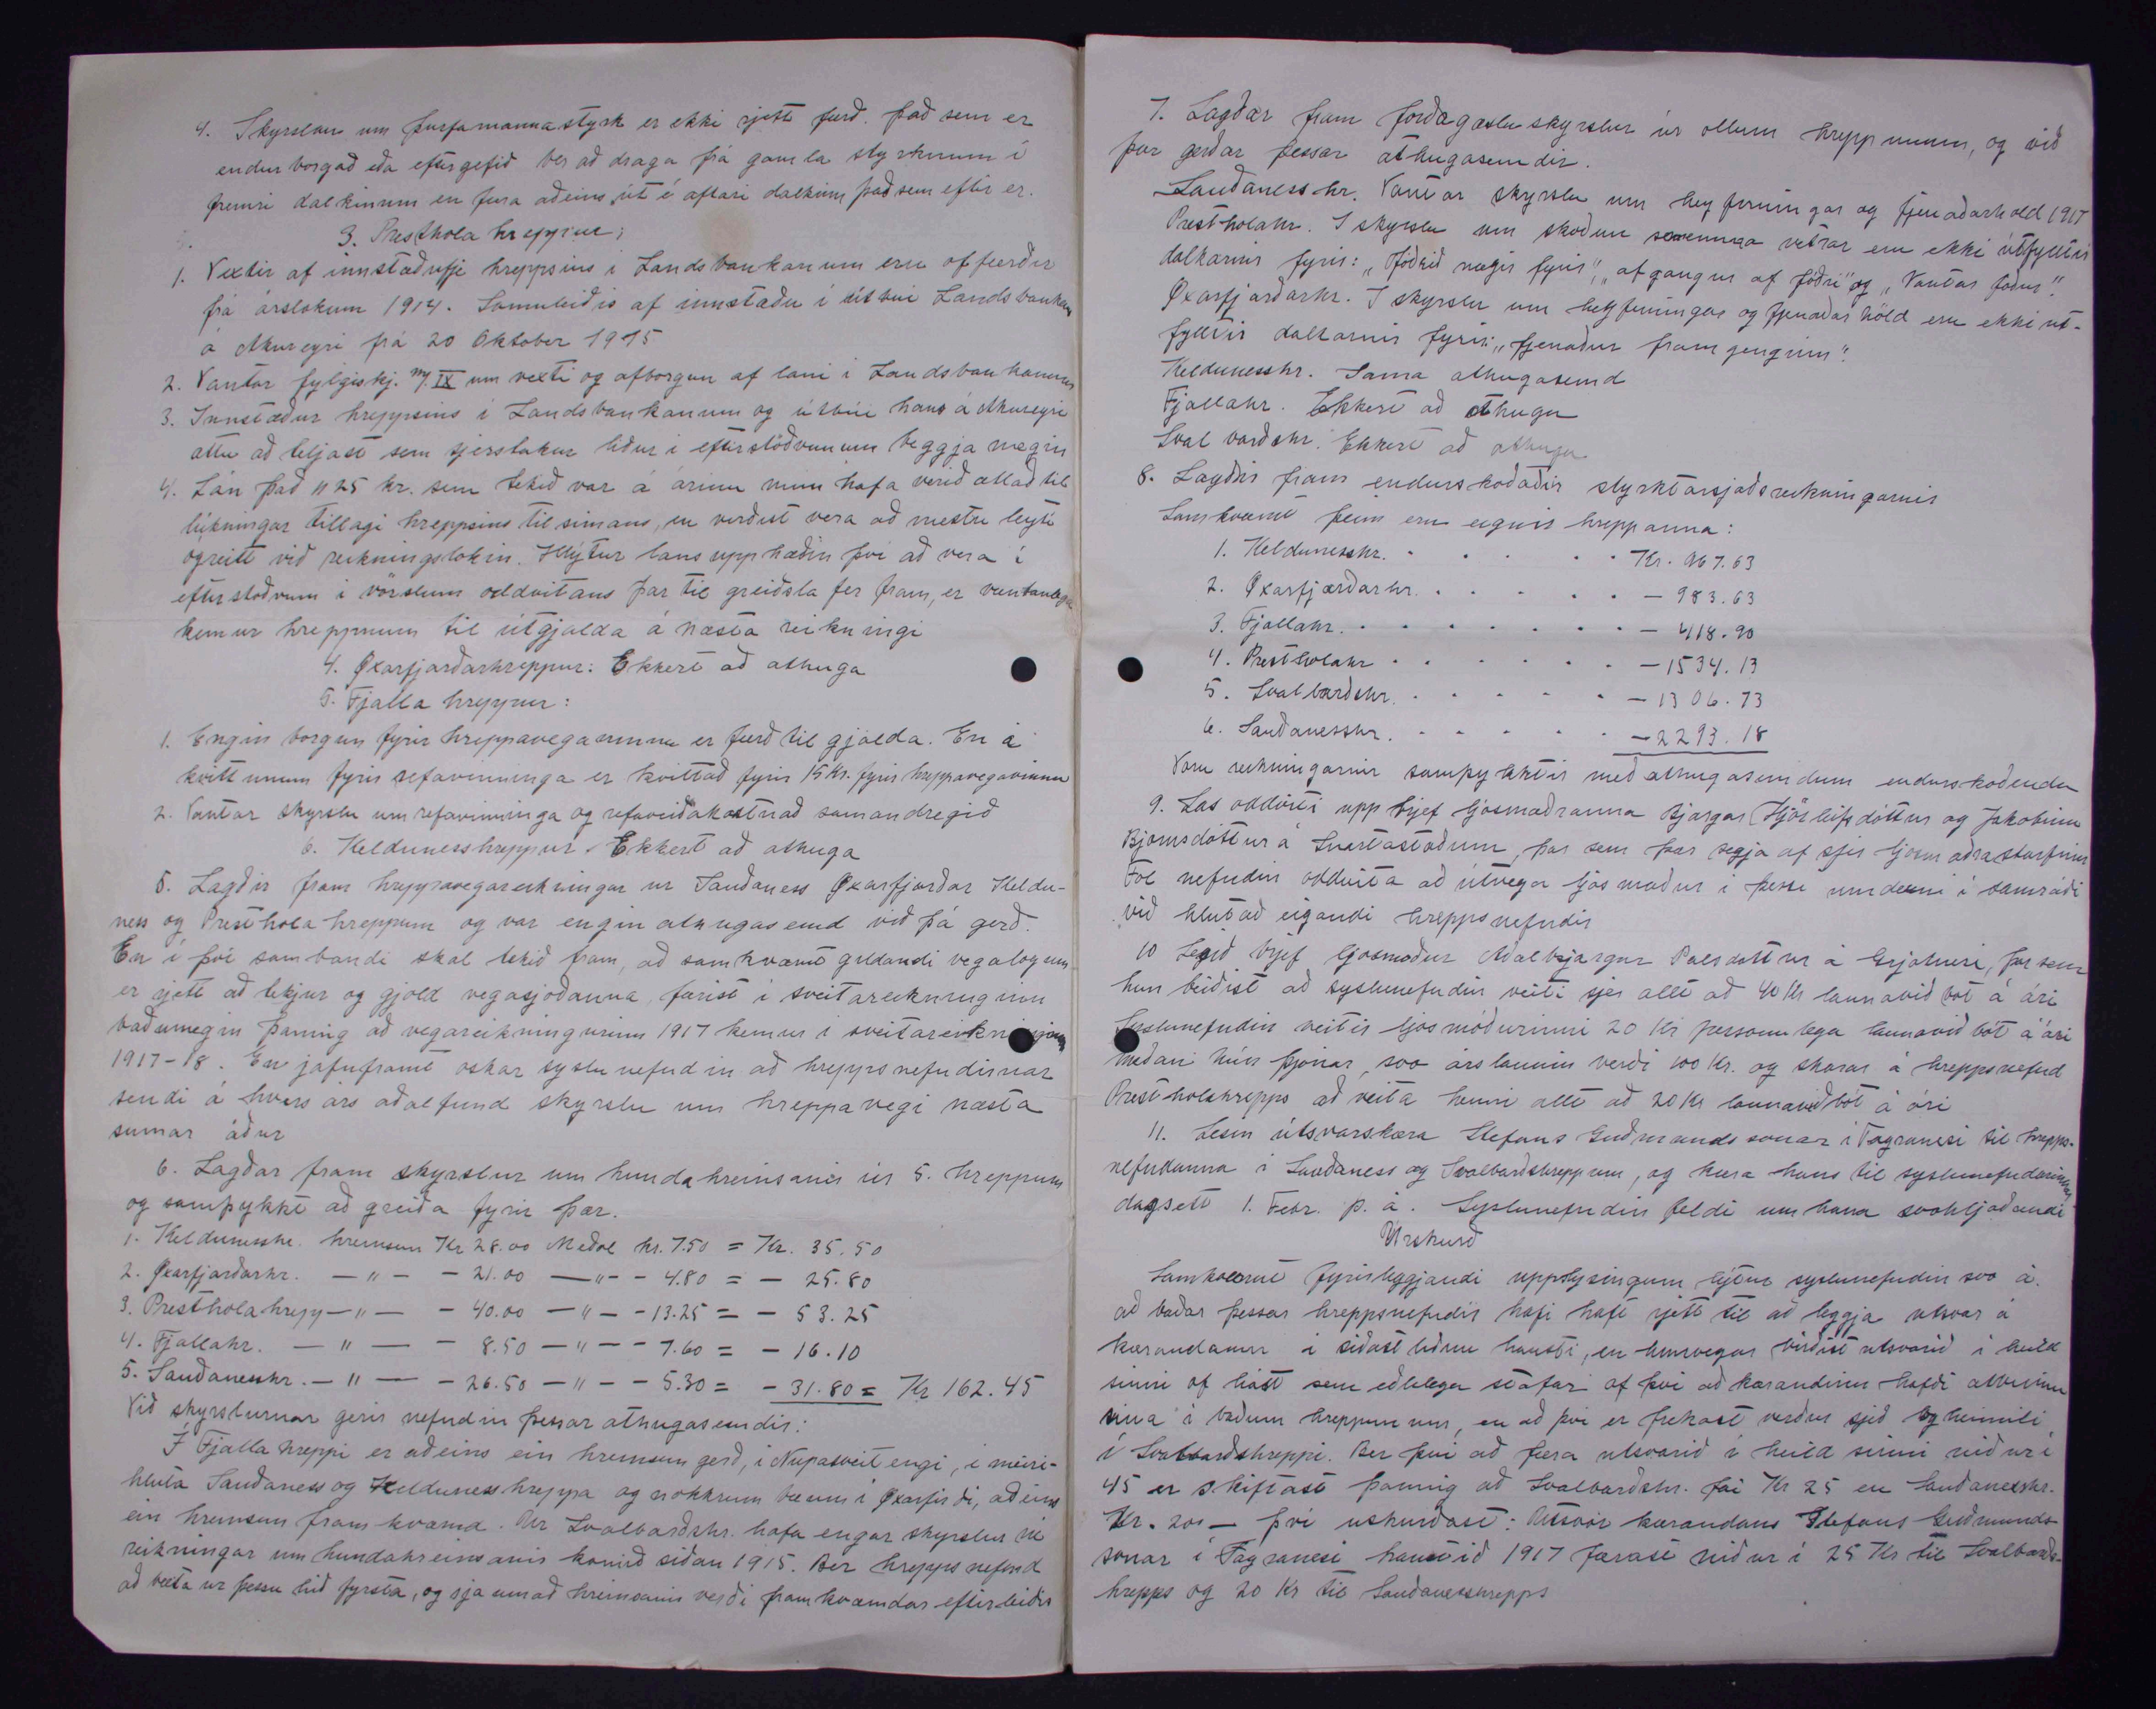 4. Skyrslan um þurfamannastyrk er ekki rjett færð. Það sem er
endurborgað eða eftirgefið ber að draga frá gamla styrknum í
fremri dalkinum en færa aðeins út í aftari dalkinn það sem eftir er.
3. Presthola hreppur:
1. Vextir af innstæðufje hreppsins i Landsbankanum eru offærðir
frá árslokum 1914. Sömuleiðis af innstæðu i útbúi Landsbankans
á Akureyri frá 20 Oktober 1915
2. Vantar fylgiskj. nr. IX um vexti og afborgun af láni i Landsbankanum
3. Innstæður hreppsins i Landsbankanum og útbúi hans á Akureyri
áttu að teljast sem sjerstakur liður i eftirstöðvunum beggja megin
4. Lán það 1125 kr. sem tekið var á árinu mun hafa verið ætlað til
lúkningar tillagi hreppsins til simans, en virðist vera að mestu leyti
ogreitt við reikningslokin. Hlýtur lansupphæðin því að vera í
eftirstoðvum i vörslum oddvitans þar til greiðsla fer fram, er væntanlega
kemur hreppnum til útgjalda á næsta reikningi
4. Øxarfjarðarhreppur: Ekkert að athuga
5. Fjalla hreppur:
1. Engin borgun fyrir hreppavegavinnu er færð til gjalda. En á
kvittunum fyrir refavinninga er kvittað fyrir 15 Kr. fyrir hreppavegavinnu
2. Vantar skyrslu um refavinninga og refaveiðakostnað samandregið
6. Keldunesshreppur. Ekkert að athuga
5. Lagðir fram hreppavegareikningar ur Sauðaness Øxarfjarðar Keldu-
ness og Presthola hreppum og var engin athugasemd við þá gerð.
En i því sambandi skal tekið fram, að samkvæmt gildandi vegalogum
er rjett að tekjur og gjöld vegasjoðanna, færist i sveitareikninginn
baðumegin þannig að vegareikningurinn 1917 kemur i sveitareikninginn
1917-18. En jafnframt oskar syslunefndin að hreppsnefndirnar
sendi á hvers árs aðalfund skyrslu um hreppavegi næsta
sumar áður
6. Lagðar fram skyrslur um hundahreinsanir úr 5. hreppum
og samþykkt að greiða fyrir þær.
1. Keldunesshr. hreinsun Kr 28.00 Meðal kr. 7.50 = Kr. 35.50
2. Øxarfjarðarhr. — " — - 21.00 — " - - 4.80 = - 25.80
3. Presthola hrepp — " — - 40.00 — " — - 13.25 = - 53.25
4. Fjallahr. — " — - 8.50 — " — - 7.60 = - 16.10
5. Sauðanesshr. — " — - 26.50 — " — - 5.30 = - 31.80 = Kr 162.45
Við skyrslurnar gerir nefndin þessar athugasemdir:
Í Fjalla hreppi er aðeins ein hreinsun gerð, i Nupasveit engi, i meiri-
hluta Sauðaness og Kelduness hreppa og nokkrum bæum i Øxarfirði, aðeins
ein hreinsun framkvæmd. Ur Svalbarðshr. hafa engar skyrslur nè
reikningar um hundahreinsanir komið siðan 1915. Ber hreppsnefnd
að bæta ur þessu hið fyrsta, og sja um að hreinsanir verði framkvæmdar eftirleiðis
7. Lagðar fram forðagæsluskyrslur úr ollum hreppunum, og við
þær gerðar þessar athugasemdir.
Sauðaness hr. Vantar skyrslu um heyforningar og fjenaðarhöld 1917
Prestholahr. I skyrslu um skoðun vetrar eru ekki utfylltir
dalkarnir fyrir: „Fóðrið nægir fyrir", „afgangur af fóðri" og „Vantar foður".
Øxarfjarðarhr. I skyrslu um heyforningar og fjenaðarhöld eru ekki ut-
fylltir dalkarnir fyrir: „fjenaður framgenginn".
Keldunesshr. Sama athugasemd
Fjallahr. Ekkert að athuga
Svalbarðshr. Ekkert að athuga
8. Lagðir fram endurskoðaðir styrktarsjoðsreikningarnir
Samkvæmt þeim eru eignir hreppanna:
1. Keldunesshr. . . . . Kr. 967.63
2. Øxarfjarðarhr. . . . . . - 983.63
3. Fjallahr. . . . . . . . - 418.90
4. Prestholahr . . . . . . - 1534.13
5. Svalbarðshr. . . . . . - 1306.73
6. Sauðanesshr. . . . . . - 2293.18
Voru reikningarnir samþykktir með athugasemdum endurskoðenda
9. Las oddviti upp brjef ljosmæðranna Bjargar Hjörleifsdóttur og Jakobinu
Bjornsdóttur á Svartastoðum, þar sem þær segja af sjer ljosmæðrastarfinu
Fól nefndin oddvita að útvega ljósmæður i þessi umdæmi i samráði
við hlutaðeigandi hreppsnefndir
10 Lesið brjef ljosmoður Aðalbjargar Palsdottur á Grjotnesi, þar sem
hun beiðist að syslunefndin veiti sjer allt að 40 Kr launaviðbót á ári
Syslunefndin veitir ljosmóðurinni 20 Kr personulega launaviðbót á ári
meðan hún þjónar, svo árslaunin verði 100 Kr. og skorar á hreppsnefnd
Prestholahrepps að veita henni allt að 20 Kr launaviðbót á ári
11. Lesin útsvarskæra Stefans Guðmundssonar i Fagranesi til hrepps-
nefndanna i Sauðaness og Svalbarðshreppum, og kæra hans til syslunefndarinnar
dagsett 1. Febr. þ. á. Syslunefndin feldi um hana svohljoðandi
Urskurð
Samkvæmt fyrirleggjandi upplysingum lýtur syslunefndin svo á.
að baðar þessar hreppsnefndir hafi haft rjett til að leggja utsvar á
kærandann á siðastliðnu hausti, en hinsvegar virðist utsvarið i heild
sinni of hátt sem eðlilega stafar af þvi að kærandinn hafði atvinnu
sina i baðum hreppunum, en að þvi er frekast verður sjeð heimili
i Svalbarðshreppi. Ber þvi að færa utsvarið i heild sinni niður i
45 er skiftast þannig að Svalbarðshr. fái Kr 25 en Sauðanesshr.
Kr. 20 — þvi uskurðast: Utsvar kærandans Stefans Guðmunds-
sonar i Fagranesi haustið 1917 færast niður i 25 Kr til Svalbarðs-
hrepps og 20 Kr til Sauðanesshrepps